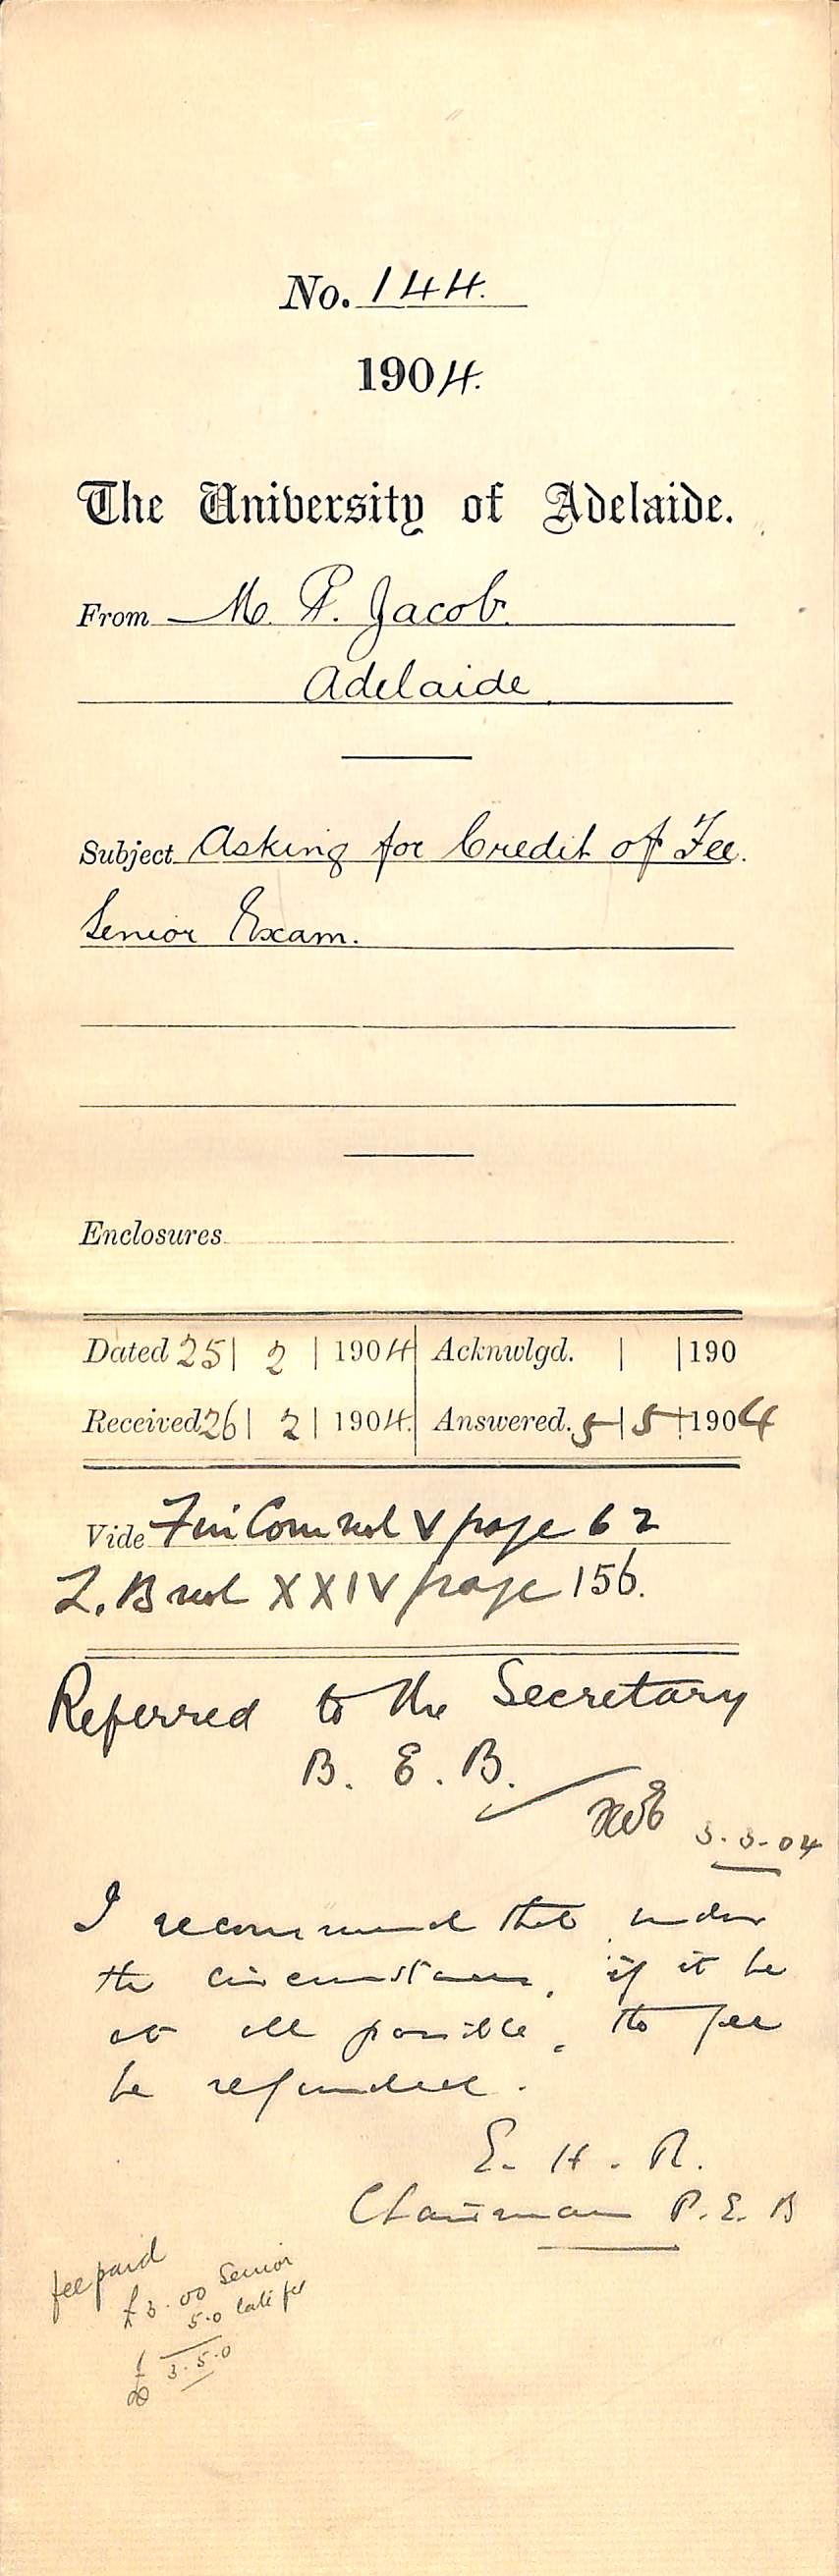 No. 144.
1904.
The University of Adelaide.
From M. P. Jacob.
Adelaide.
Subject Asking for Credit of Fee.
Senior Exam.
Enclosures
Dated 25 | 2 | 1904 Acknwlgd. | | 190
Received 26 | 2 | 1904. Answered. 5 | 5 | 1904
Vide Fin Com vol V page 62
L. B vol XXIV page 156.
Referred to the Secretary
B. E. B.
3.3.04
I recommend that under
the circumstances, if it be
at all possible, the fee
be refunded.
E. H. R.
Chairman P. E. B
fee paid
£3.00 Senior
5.0 late fee
£3.5.0